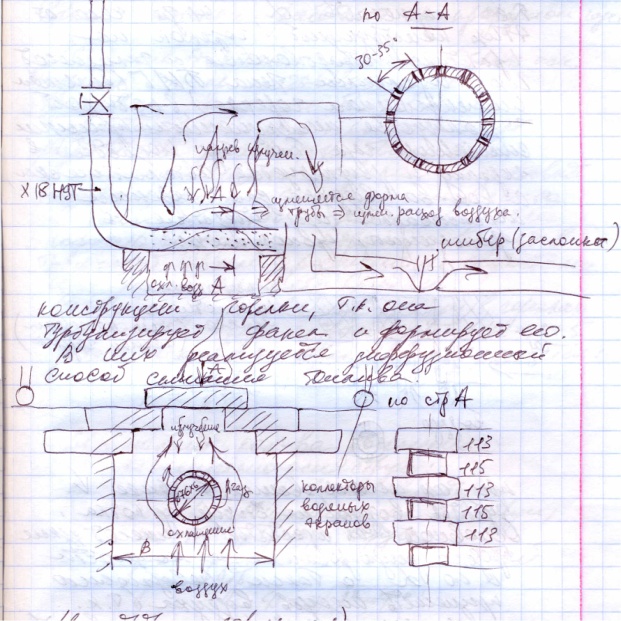 по А-А
30-35°
Х18Н9Т
А
изменяется форма
трубы => изм. расход воздуха.
шибер (заслонка)
охл. возд А
конструкции горелки, т.к. она
турбулизирует факел и формирует его.
В них реализуется диффузионный
способ сжигания топлива.
А
по стр А
излучение
113
115
113
115
113
коллекторы
водяных
экранов
охлаждение
В
воздух